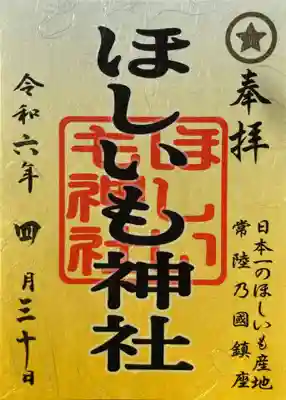 奉拝
日本一のほしいも産地
常陸乃國鎮座
ほしいも神社
ほしい
も神社
令和六年 四月三十日